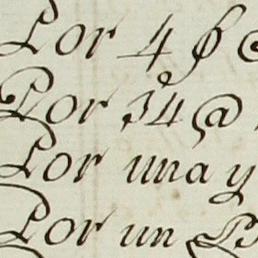 Por 4 $
Por 34 @
Por una y
Por un